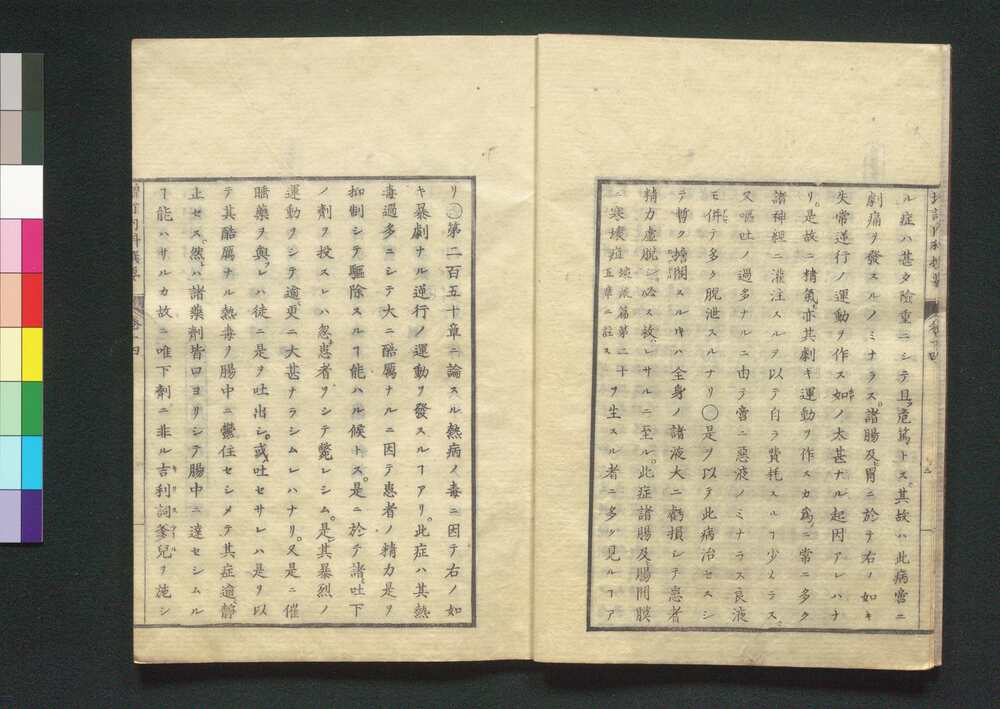 ル症ハ甚タ險重ニシテ且危篤トス。其故ハ此病啻ニ
劇痛ヲ發スルノミナラス。諸腸及胃ニ於テ右ノ如キ
失常逆行ノ運動ヲ作ス如ノ太甚ナル起因アレハナ
リ。是故ニ精氣亦其劇キ運動ヲ作スカ爲ニ常ニ多ク
諸神經ニ灌注スルヲ以テ自ラ費耗スルヿ少カラス。
又嘔吐ノ過多ナルニ由テ啻ニ惡液ノミナラス良液
モ併テ多ク脱泄スルナリ〇是ヲ以テ此病治セスシ
テ暫ク擔閣スルキハ全身ノ諸液大ニ虧損シテ患者
精力虚脱シ必ス救ヘレサルニ至ル。此症諸腸及腸間膜
ニ寒壊疽 焮衝篇第二十五章ニ註ス ヲ生スル者ニ多ク見ルヿア
リ〇第二百五十章ニ論スル熱病ノ毒ニ因テ右ノ如
キ暴劇ナル逆行ノ運動ヲ發スルヿアリ。此症ハ其熱
毒過多ニシテ大ニ酷厲ナルニ因テ患者ノ精力是ヲ
抑制シテ驅除スルヿ能ハル候トス。是ニ於テ諸吐下
ノ劑ヲ投スレハ忽患者ヲシテ斃レシム。是其暴烈ノ
運動ヲシテ逾更ニ大甚ナラシムレハナリ。又是ニ催
膽藥ヲ與レハ徒ニ是ヲ吐出シ。或吐セサレハ是ヲ以
テ其酷厲ナル熱毒ヲ腸中ニ鬱住セシメテ其症逾靜
止セス。然ハ諸藥劑皆口ヨリシテ腸中ニ達セシムル
ヿ能ハサルカ故ニ唯下劑ニ非ル吉利詞爹兒ヲ施シ